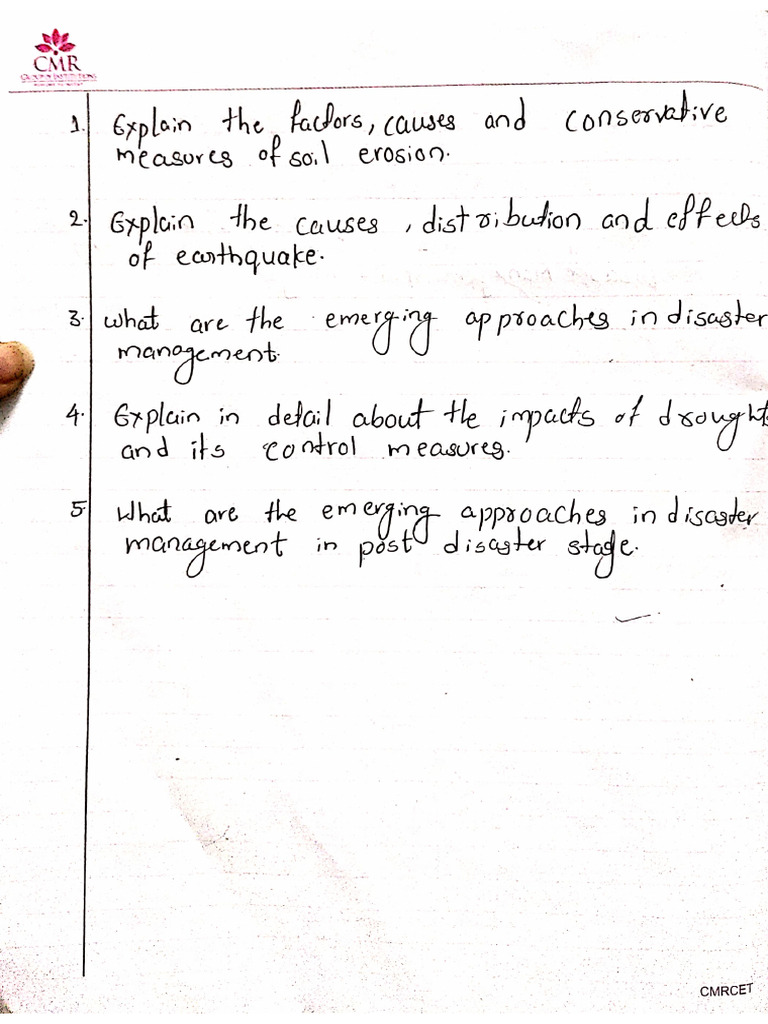 CMR
GROUP OF INSTITUTIONS
1. Explain the factors, causes and conservative
measures of soil erosion.
2. Explain the causes, distribution and effects
of earthquake.
3. What are the emerging approaches in disaster
management.
4. Explain in detail about the impacts of drought
and its control measures.
5 What are the emerging approaches in disaster
management in post disaster stage.
CMRCET